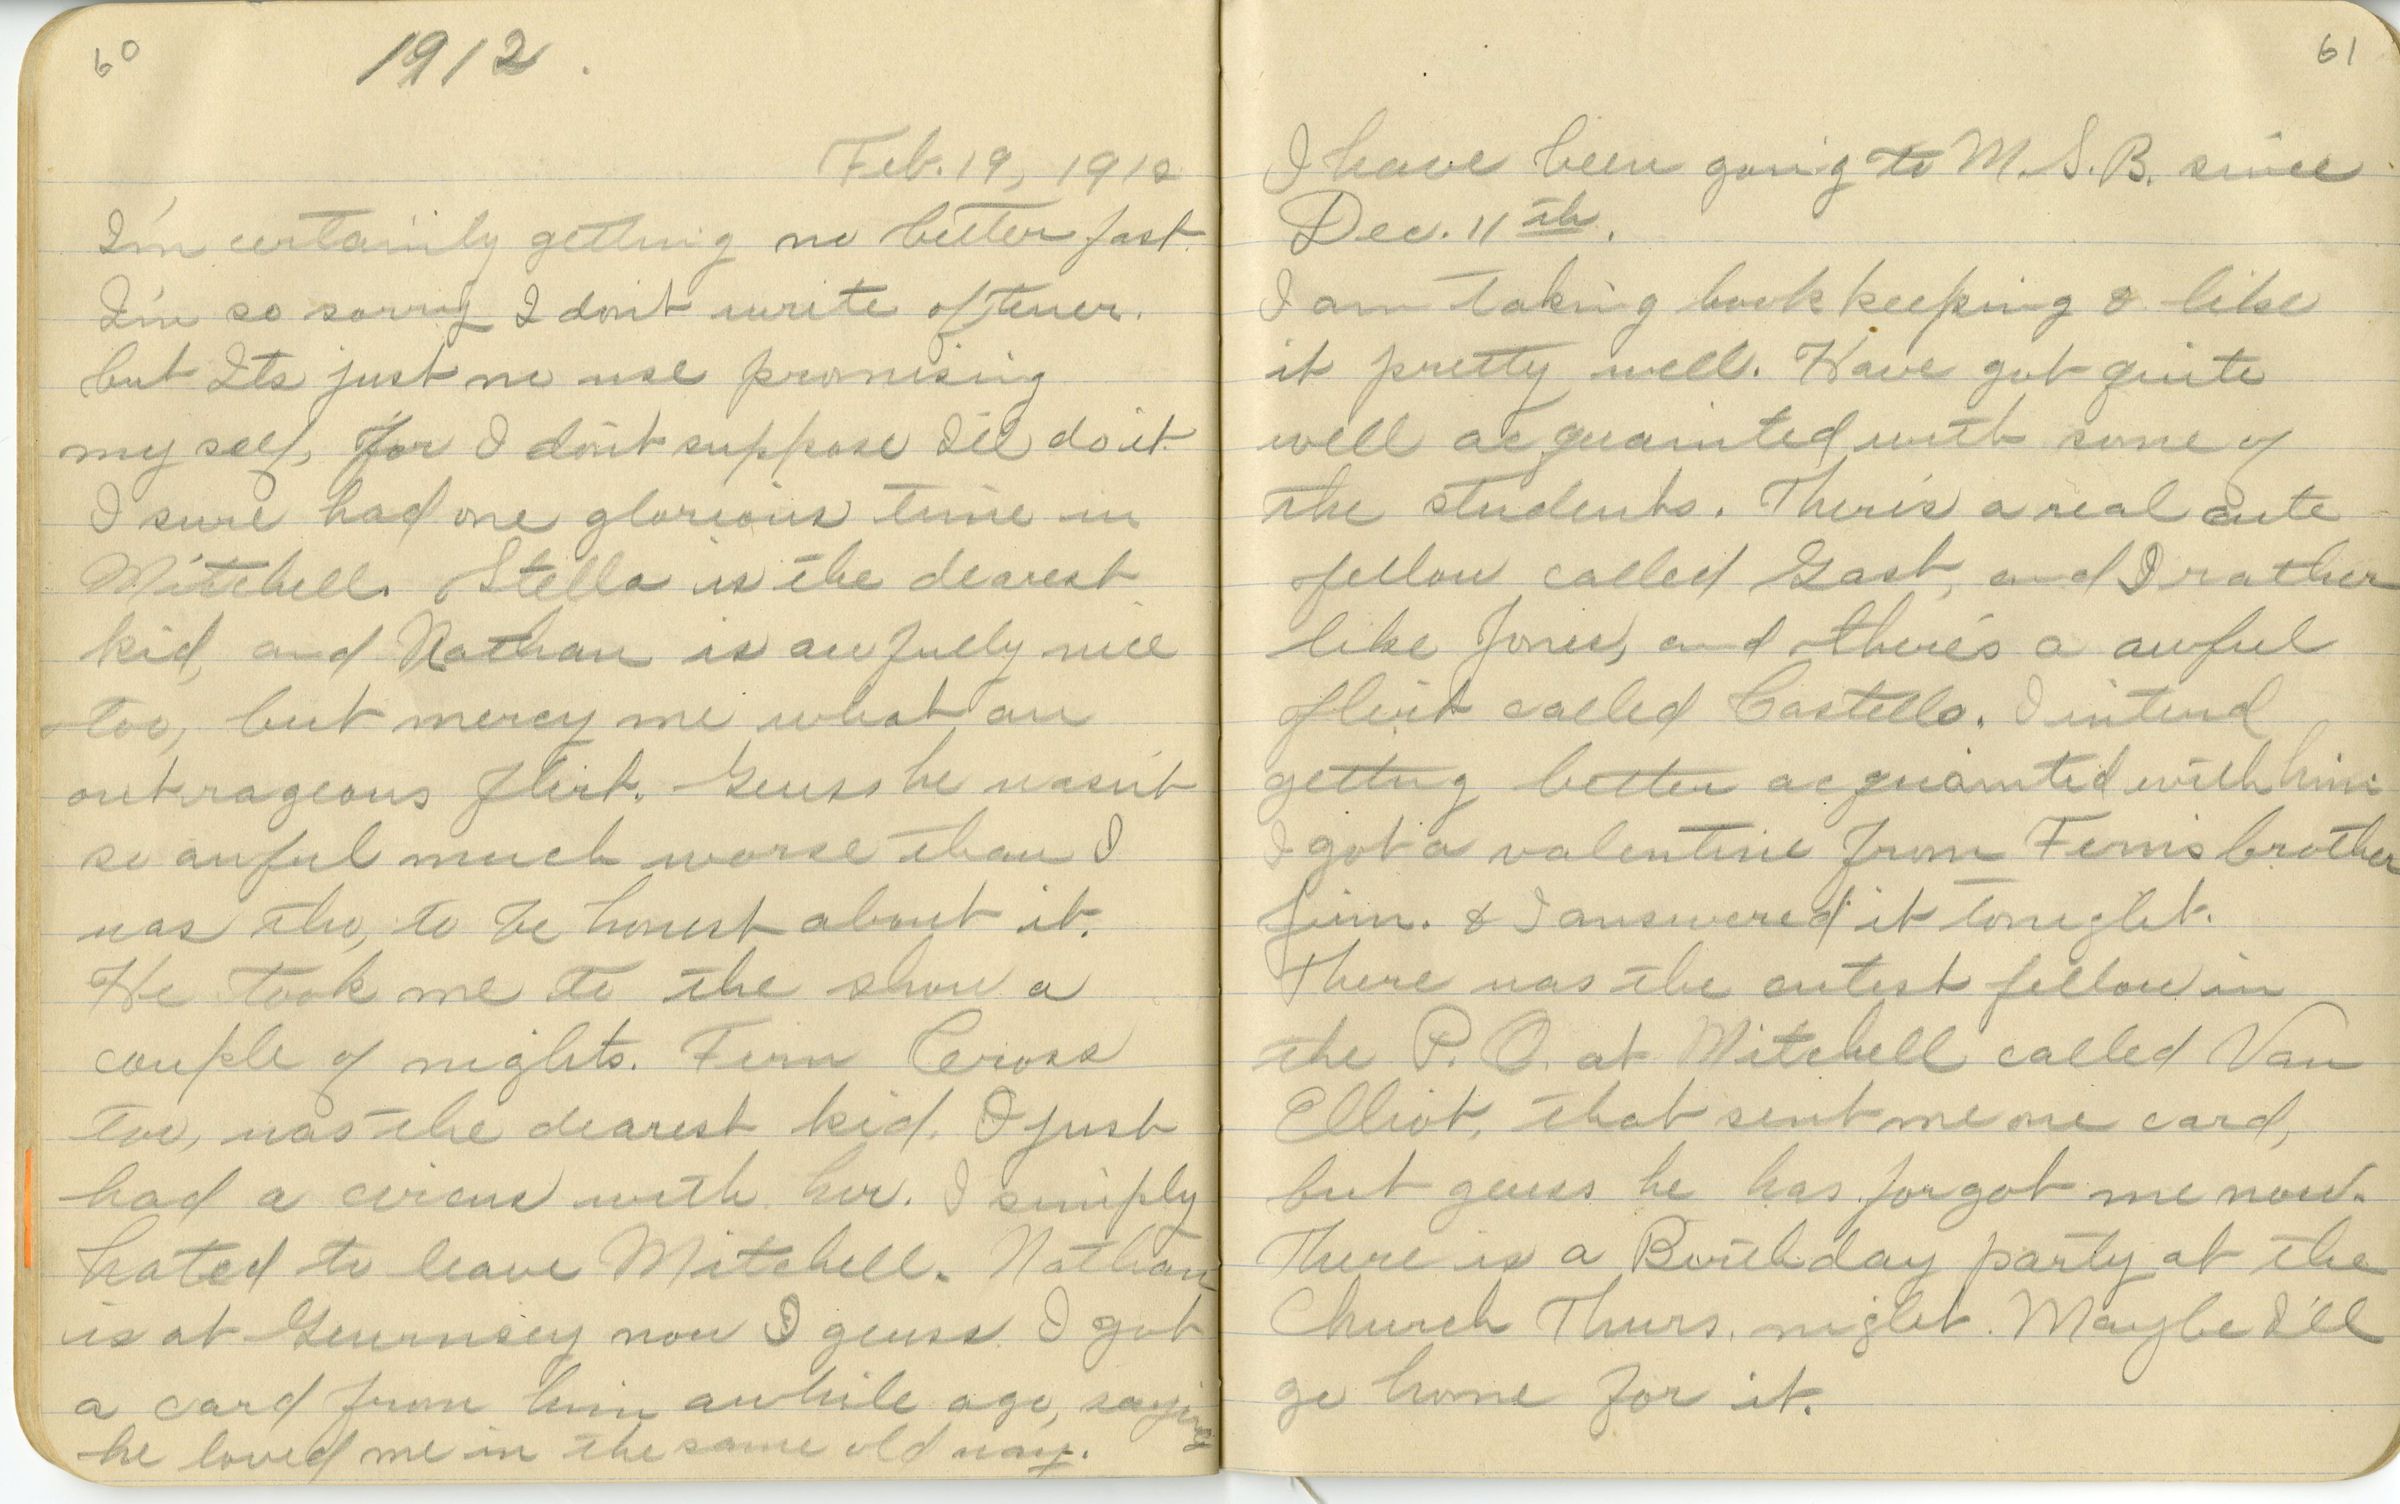 60
1912.
Feb. 19, 1912
I'm certainly getting no better fast.
I'm so sorry I don't write oftener.
but Its just no use promising
my self, for I don't suppose I'll do it.
I sure had one glorious time in
Mitchell. Stella is the dearest
kid, and Nathan is awfully nice
too, but mercy me what an
outrageous flirt. Guess he wasn't
so awful much worse than I
was tho, to be honest about it.
He took me to the show a
couple of nights. Fern Cross
too, was the dearest kid. I just
had a circus with her. I simply
hated to leave Mitchell. Nathan
is at Guernsey now I guess. I got
a card from him awhile ago, saying
he loved me in the same old way.
61
I have been going to M.S.B. since
Dec. 11th.
I am taking book keeping & like
it pretty well. Have got quite
well acquainted with some of
the students. There's a real cute
fellow called Gast, and I rather
like Jones, and there's a awful
flirt called Castello. I intend
getting better acquainted with him
I got a valentine from Ferns brother
Jim. & I answered it tonight.
There was the cutest fellow in
the P. O. at Mitchell called Van
Elliot, that sent me one card,
but guess he has forgot me now.
There is a Birthday party at the
Church Thurs. night. Maybe I'll
go home for it.